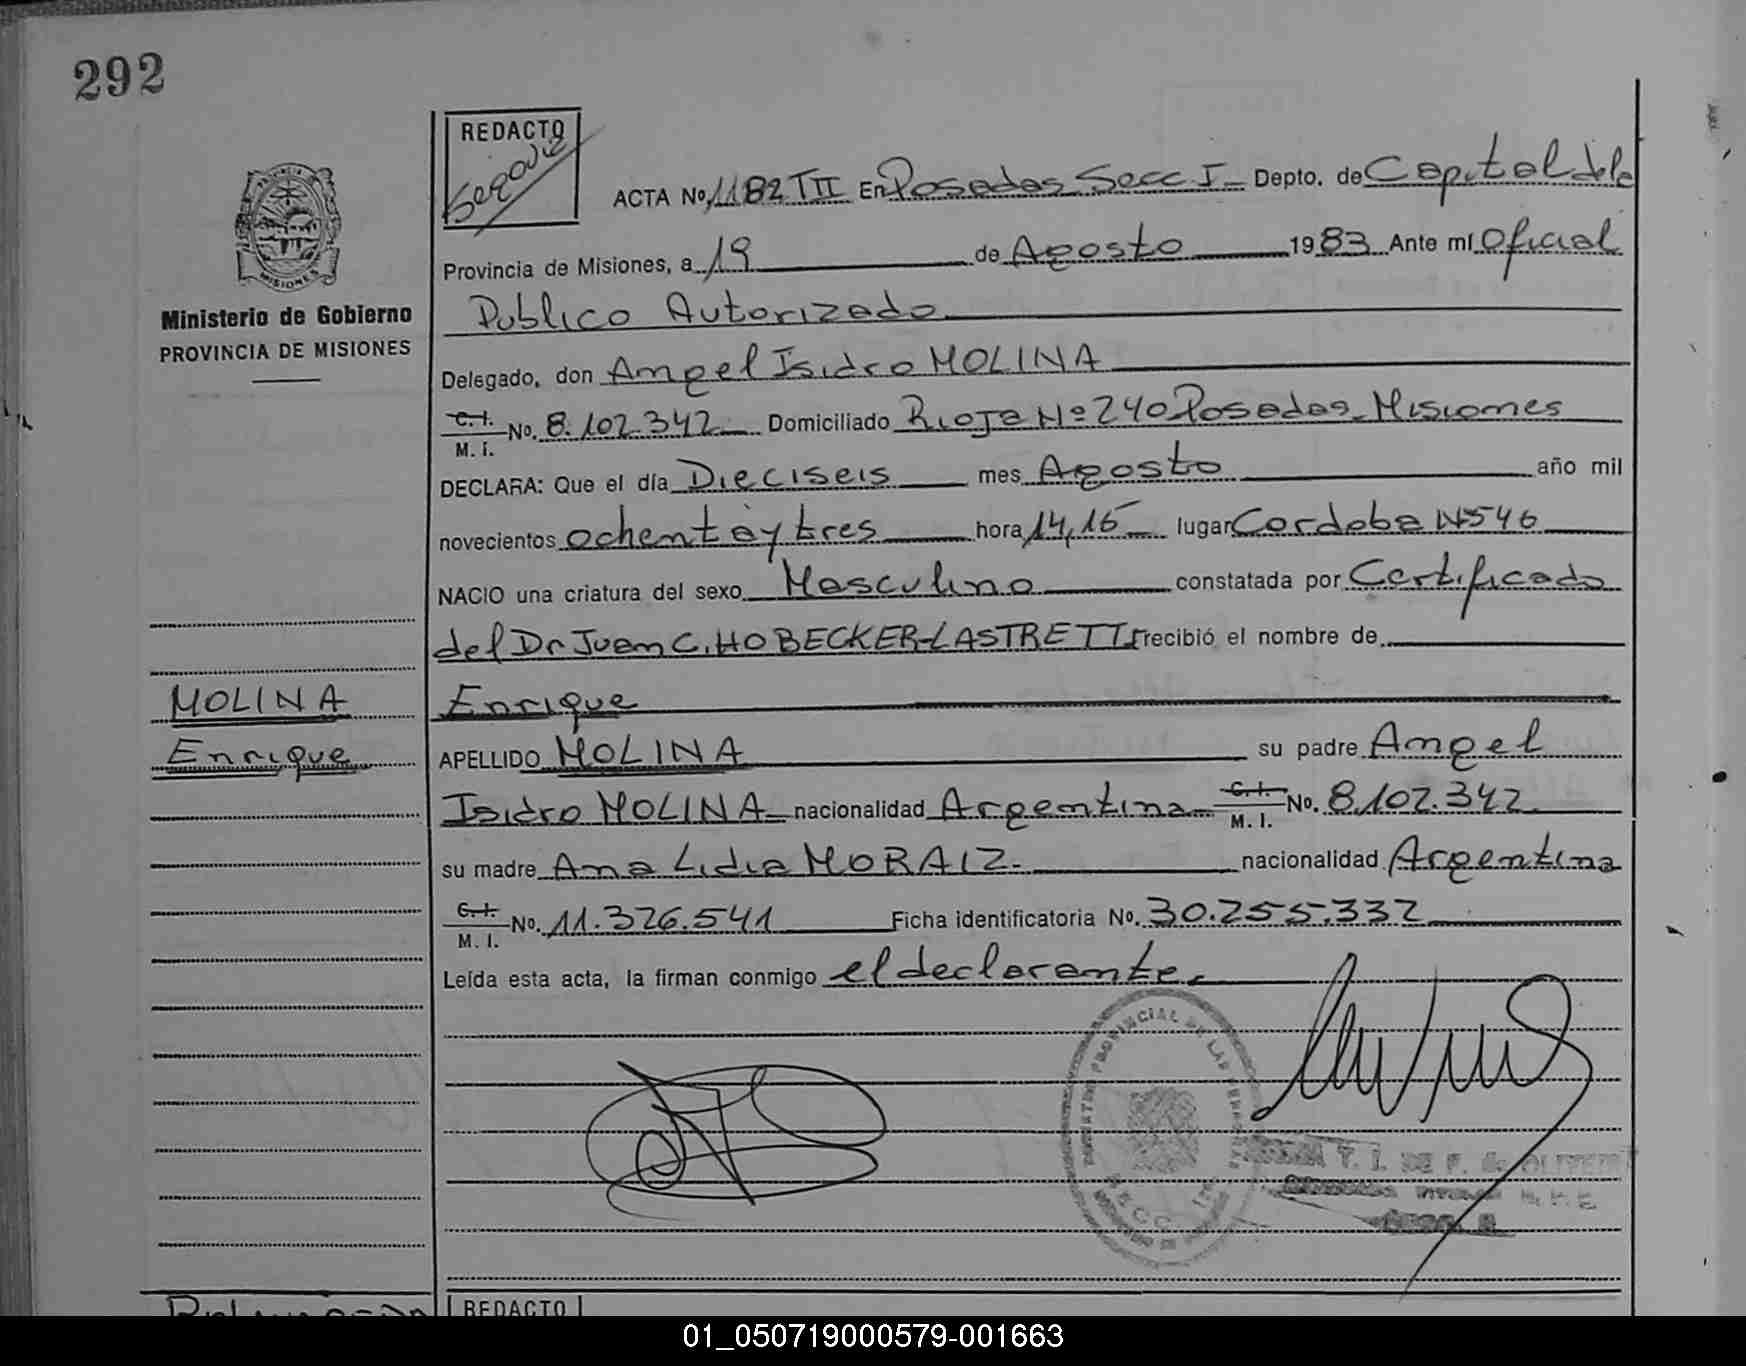 292
REDACTO
Segovia
ACTA No. 1182 TII En Posadas Secc I Depto. de Capital de la
Provincia de Misiones, a 19 de Agosto 1983 Ante mí Oficial
Publico Autorizado
Delegado, don Angel Isidro MOLINA
C.I. M.I. No. 8.102.342 Domiciliado Rioja Nº 240 Posadas Misiones
DECLARA: Que el día Dieciseis mes Agosto año mil
novecientos ochenta y tres hora 14,15 lugar Cordoba Nº 546
NACIO una criatura del sexo Masculino constatada por Certificado
del Dr Juan C. HOBECKER-LASTRETTI recibió el nombre de
Enrique
APELLIDO MOLINA su padre Angel
Isidro MOLINA nacionalidad Argentina C.I. M.I. No. 8.102.342
su madre Ana Lidia MORAIZ.- nacionalidad Argentina
C.I. M.I. No. 11.326.541 Ficha identificatoria No. 30.255.332
Leída esta acta, la firman conmigo el declarante.
MISIONES
Ministerio de Gobierno
PROVINCIA DE MISIONES
MOLINA
Enrique
PROVINCIAL DE LAS PERSONAS
REDACTO
01_050719000579-001663